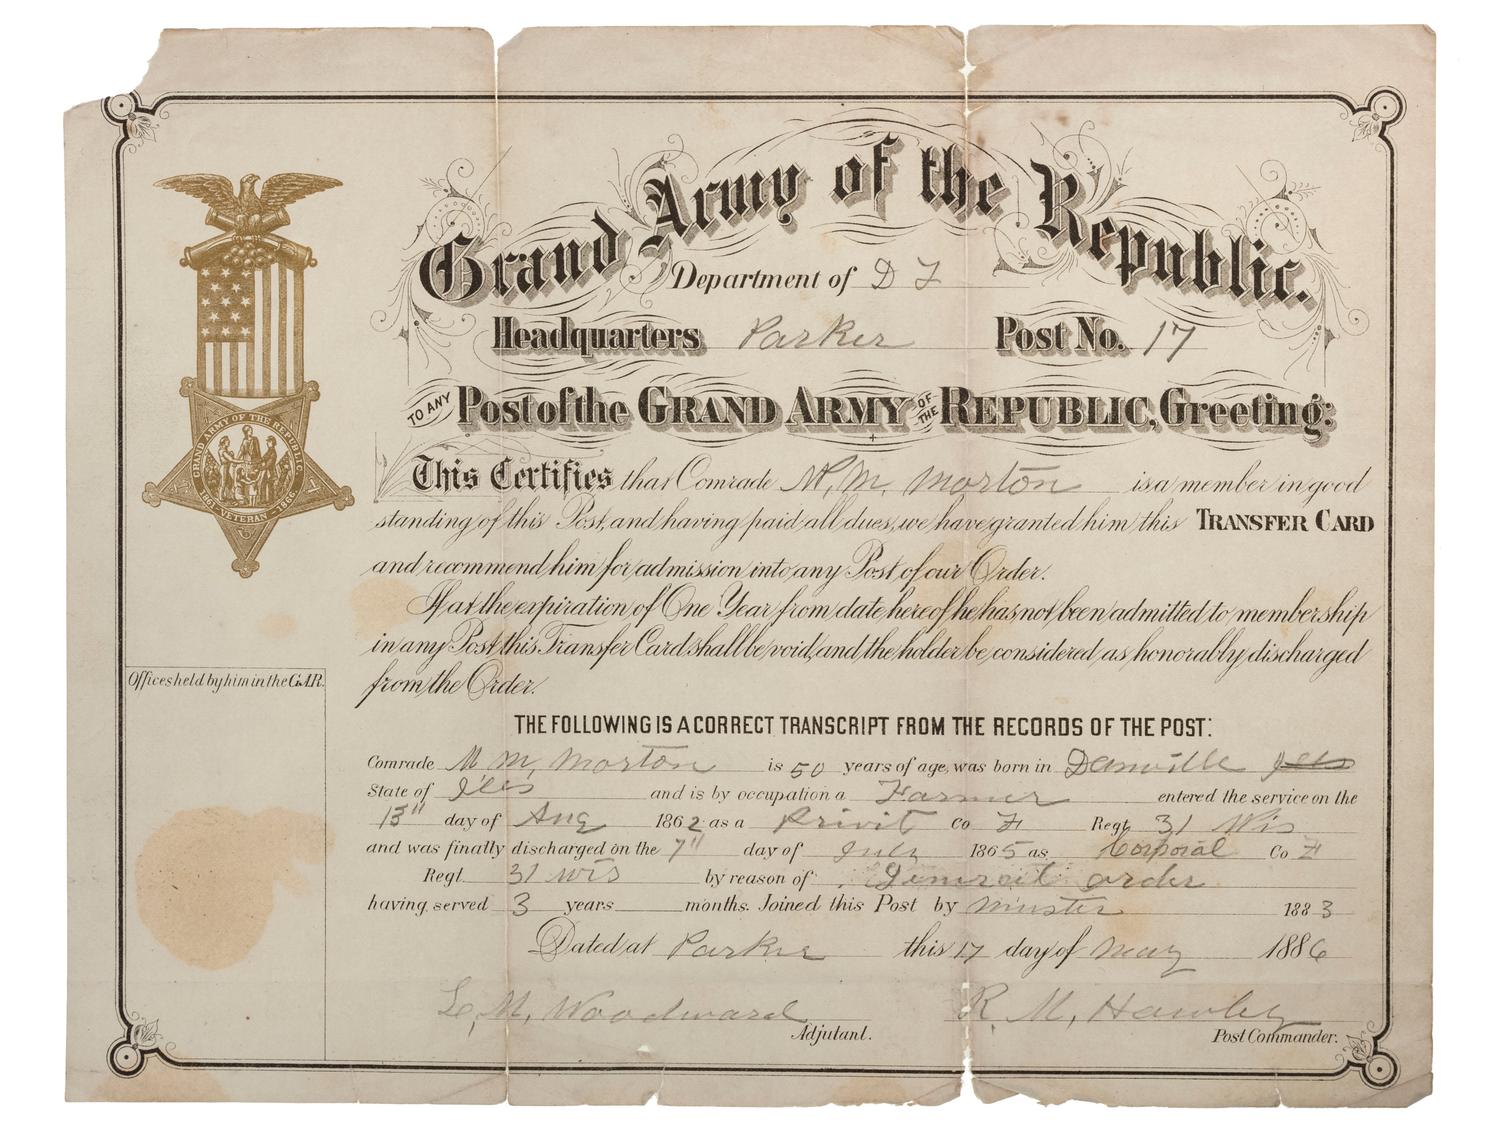 Grand Army of the Republic.
Department of D T
Headquarters Parker Post No. 17
TO ANY Post of the GRAND ARMY OF THE REPUBLIC, Greeting:
GRAND ARMY OF THE REPUBLIC
1861 - VETERAN - 1866
This Certifies that Comrade M. M. Morton is a member in good
standing of this Post, and having paid all dues, we have granted him this TRANSFER CARD
and recommend him for admission into any Post of our Order.
If at the expiration of One Year from date hereof he has not been admitted to membership
in any Post this Transfer Card shall be void, and the holder be considered as honorably discharged
from the Order.
Offices held by him in the G.A.R.
THE FOLLOWING IS A CORRECT TRANSCRIPT FROM THE RECORDS OF THE POST:
Comrade M. M. Morton is 50 years of age, was born in Danville Ills
State of Ills and is by occupation a Farmer entered the service on the
13" day of Aug 1862 as a Privit Co F Regt 31 Wis
and was finally discharged on the 7" day of July 1865 as Corporal Co F
Regt 31 Wis by reason of order
having served 3 years months. Joined this Post by Muster 1883
Dated at Parker this 17 day of May 1886
L. M. Woodward R. M. Hawley
Adjutant. Post Commander.